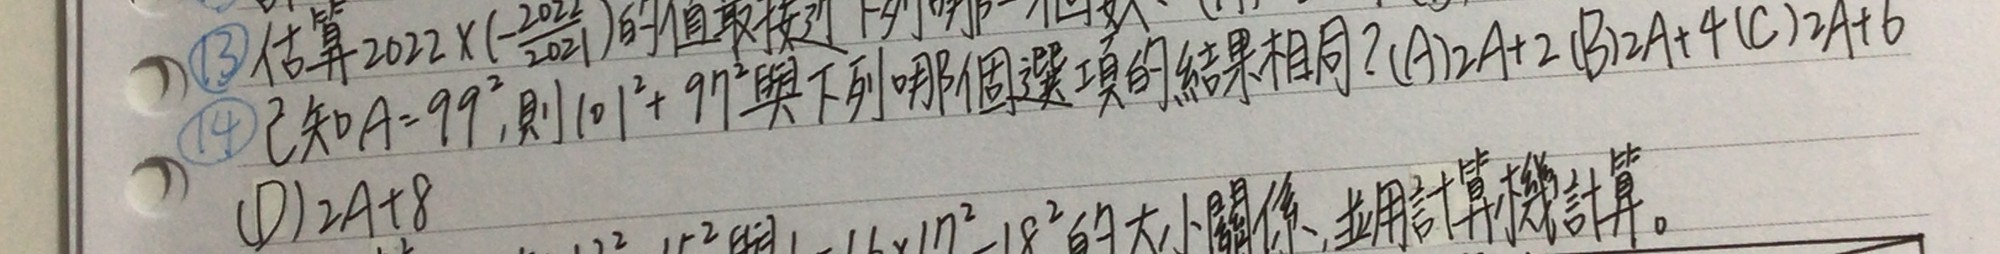 ⑬估算2022×(-2022/2021)的值最接近下列哪一個數
⑭已知A=99²,則101²+97²與下列哪個選項的結果相同?(A)2A+2(B)2A+4(C)2A+6
(D)2A+8
16×17²-18²的大小關係,並用計算機計算。